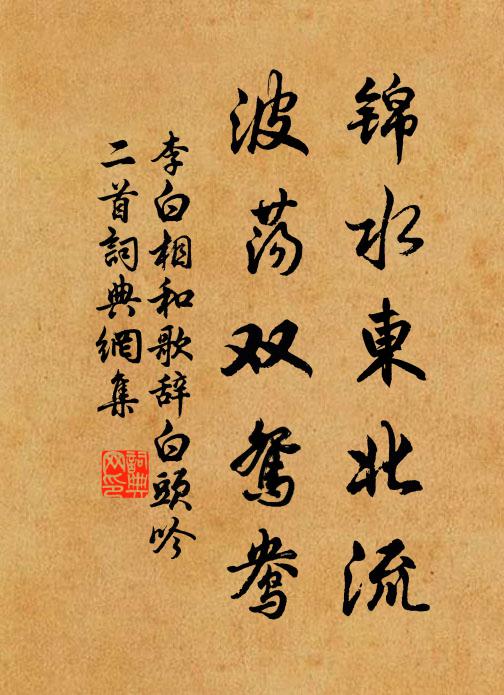 锦水東北流
波荡双鸳鸯
李白相和歌辞白頭吟
二首詞典網集
詞典网印